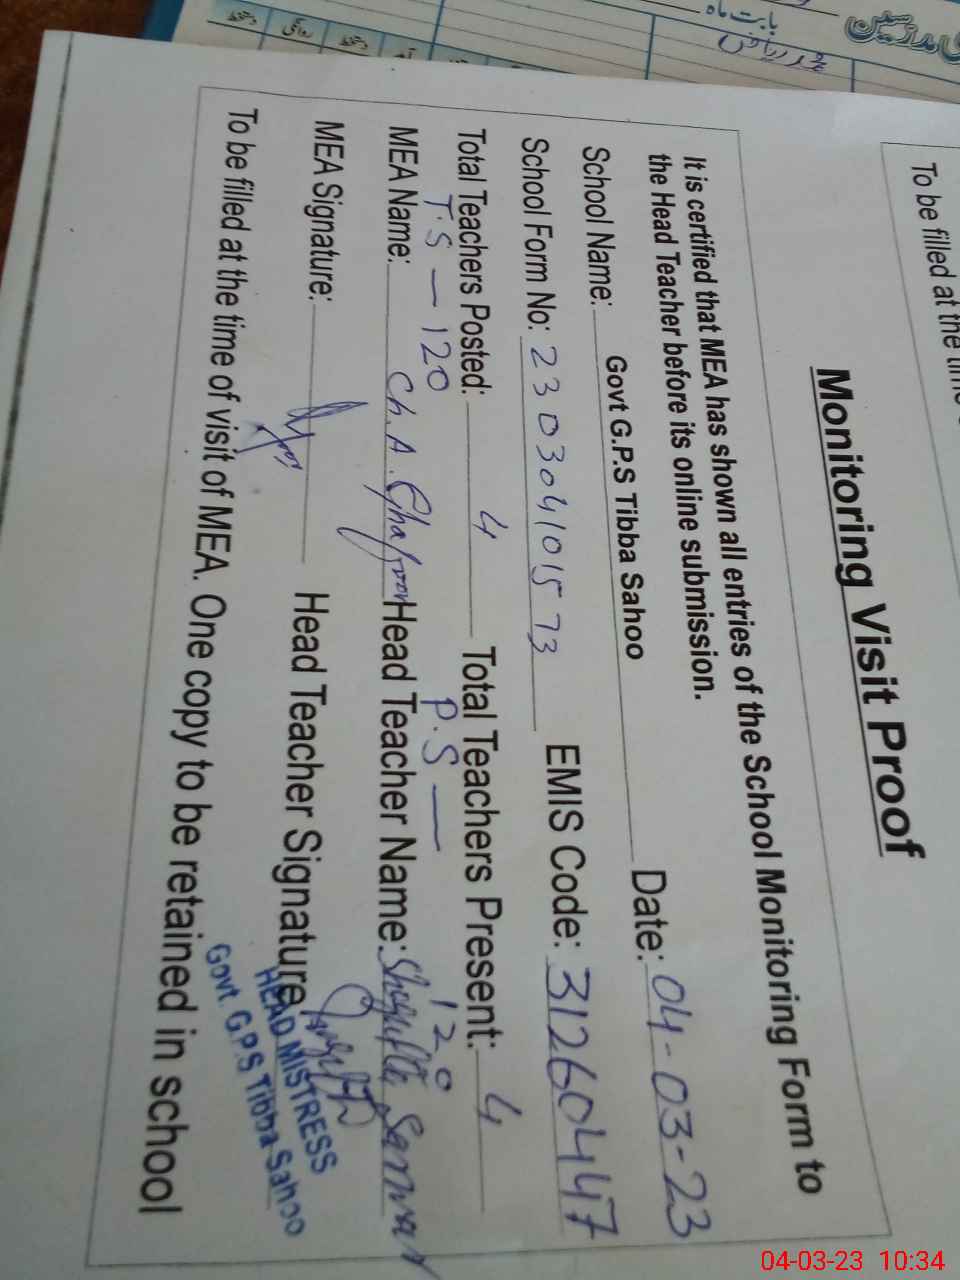 مدرسین
بابت ماہ
To be filled at the time
Monitoring Visit Proof
It is certified that MEA has shown all entries of the School Monitoring Form to
the Head Teacher before its online submission.
School Name: Govt G.P.S Tibba Sahoo Date: 04-03-23
School Form No: 230304101573 EMIS Code: 31260447
Total Teachers Posted: 4 Total Teachers Present: 4
T.S — 120 P.S — 120
MEA Name: Ch. A. Ghafoor Head Teacher Name: Shagufta Sarwar
MEA Signature: Head Teacher Signature
HEAD MISTRESS
Govt. G.P.S Tibba Sahoo
To be filled at the time of visit of MEA. One copy to be retained in school
04-03-23 10:34